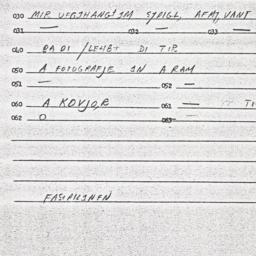 030 MIR UFGIHANGEN IM SPIGL, AFN VANT
031 — 032 — 033 —
040 BA DI /LEHBT DI TIR
050 A FOTOGRAFJE IN A RAM
051 — 052 —
060 A KOVJOR 061 — TI
062 O 063 —
FASARIGNEN